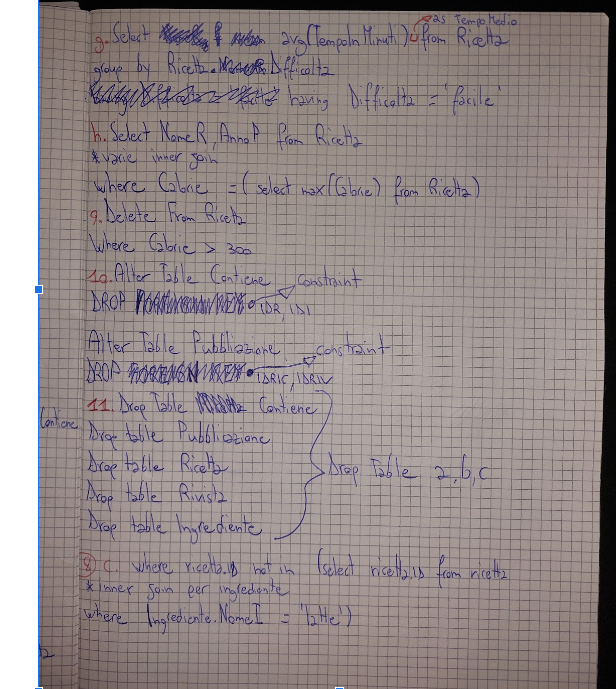 as TempoMedio
g. Select avg(TempoInMinuti) from Ricetta
group by Ricetta. Difficoltà
having Difficoltà = 'facile'
h. Select NomeR, AnnoP from Ricetta
* varie inner join
where Calorie = (select max(Calorie) from Ricetta)
9. Delete From Ricetta
Where Calorie > 300
10. Alter Table Contiene constraint
DROP IDR, IDI
Alter Table Pubblicazione constraint
DROP IDRIC, IDRIV
11. Drop Table Contiene
Contiene
Drop table Pubblicazione
Drop table Ricetta Drop Table a, b, c
Drop table Rivista
Drop table Ingrediente
8) c. where ricetta.ID not in (select ricetta.ID from ricetta
* inner join per ingrediente
where Ingrediente.NomeI = 'latte')